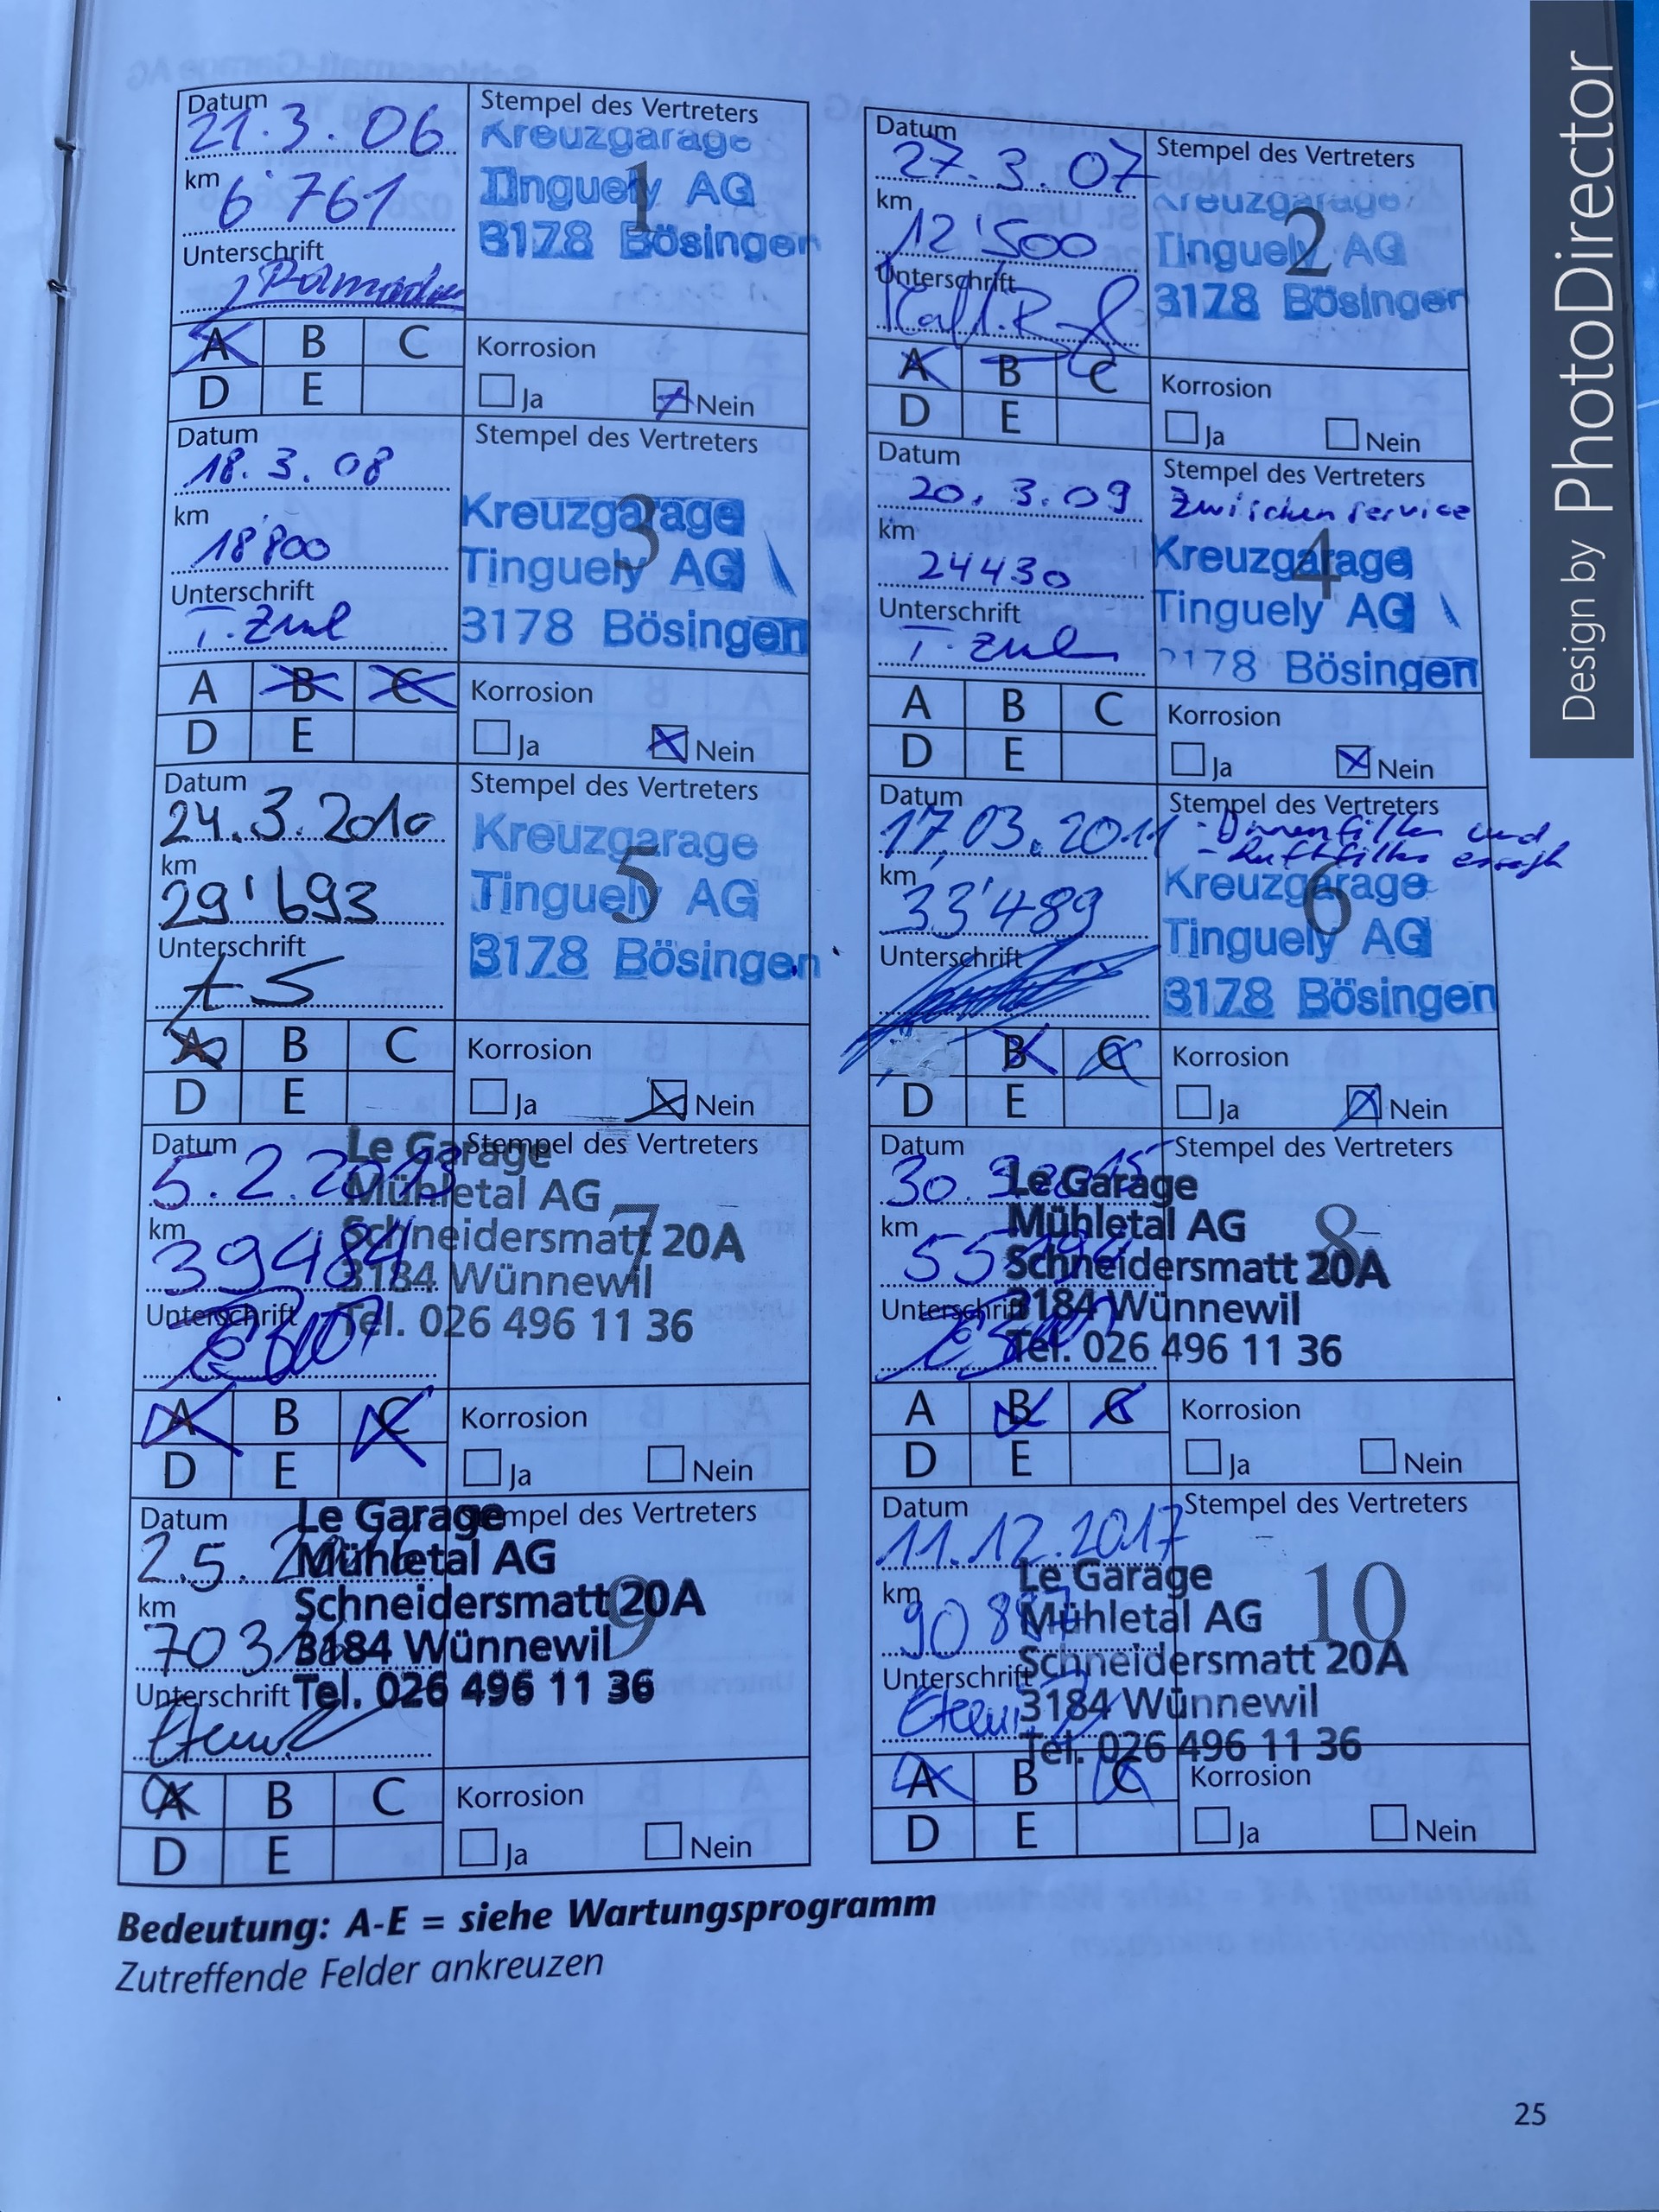 Datum
21.3.06
km
6'761
Unterschrift
Stempel des Vertreters
Kreuzgarage
Tinguely AG
3178 Bösingen
1
A B C
D E
Korrosion
Ja Nein
Datum
27.3.07
km
12'500
Unterschrift
Stempel des Vertreters
Kreuzgarage
Tinguely AG
3178 Bösingen
2
A B C
D E
Korrosion
Ja Nein
Datum
18.3.08
km
18'800
Unterschrift
Stempel des Vertreters
Kreuzgarage
Tinguely AG
3178 Bösingen
3
A B C
D E
Korrosion
Ja Nein
Datum
20.3.09
km
24430
Unterschrift
Stempel des Vertreters
Zwischenservice
Kreuzgarage
Tinguely AG
3178 Bösingen
4
A B C
D E
Korrosion
Ja Nein
Datum
24.3.2010
km
29'693
Unterschrift
Stempel des Vertreters
Kreuzgarage
Tinguely AG
3178 Bösingen
5
A B C
D E
Korrosion
Ja Nein
Datum
17.03.2011
km
33'489
Unterschrift
Stempel des Vertreters
und
- Luftfilter
Kreuzgarage
Tinguely AG
3178 Bösingen
6
B C
D E
Korrosion
Ja Nein
Datum
5.2.2013
km
39484
Unterschrift
Stempel des Vertreters
Le Garage
Mühletal AG
Schneidersmatt 20A
3184 Wünnewil
Tel. 026 496 11 36
7
A B C
D E
Korrosion
Ja Nein
Datum
30.9.2015
km
Unterschrift
Stempel des Vertreters
Le Garage
Mühletal AG
Schneidersmatt 20A
3184 Wünnewil
Tel. 026 496 11 36
8
A B C
D E
Korrosion
Ja Nein
Datum
2.5.
km
Unterschrift
Stempel des Vertreters
Le Garage
Mühletal AG
Schneidersmatt 20A
3184 Wünnewil
Tel. 026 496 11 36
9
A B C
D E
Korrosion
Ja Nein
Datum
11.12.2017
km
Unterschrift
Stempel des Vertreters
Le Garage
Mühletal AG
Schneidersmatt 20A
3184 Wünnewil
Tel. 026 496 11 36
10
A B C
D E
Korrosion
Ja Nein
Bedeutung: A-E = siehe Wartungsprogramm
Zutreffende Felder ankreuzen
25
Design by PhotoDirector